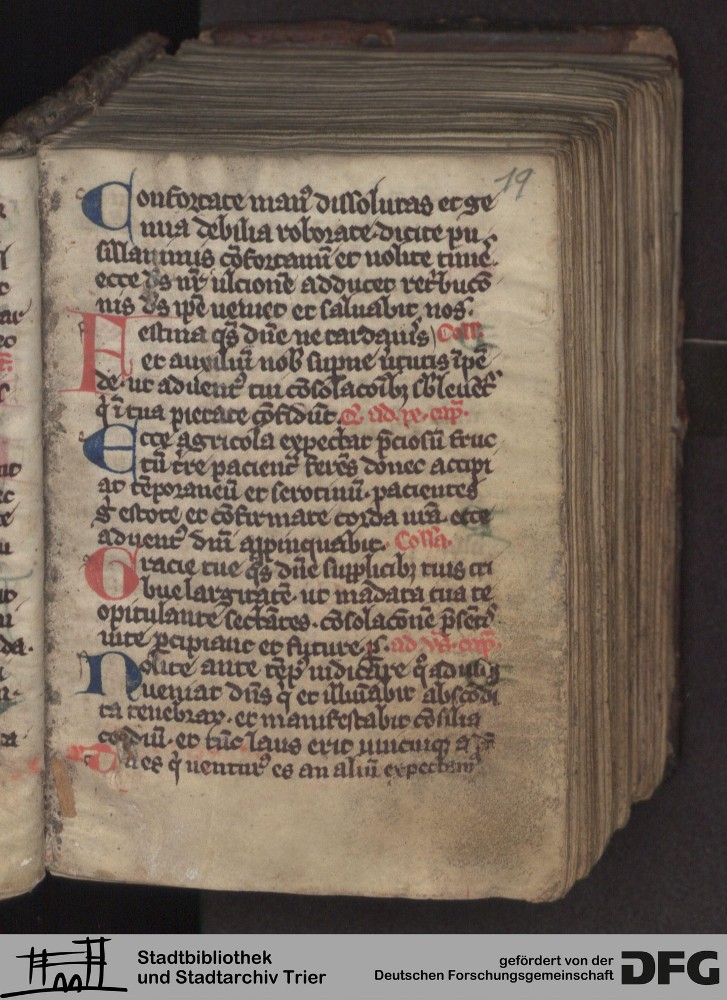 19
Confortate man⁹ dissolutas et ge
nua debilia roborate. dicite pu
sillanimis cōfortami et nolite timē.
ecce ds nr̄ ulcionē adducet retͥbucō
nis ds ip̄e veniet et saluabit nos.
Festina qs̄ dn̄e ne tardaueris Coll.
et auxiliū nob̄ supne ūtutis īpē
de. ut aduent⁹ tui cōsolacōibꝫ sb̄leuēt̄
q̄ ī tua pietate cōfidūt. ad cap̄.
Ecce agricola expectat p̄ciosū fruc
tū tr̄e pacient̄ ferēs donec accipi
at tēporaneū et serotinū. pacientes
g̊ estote et cōfirmate corda ur̄a. ecce
aduent⁹ dn̄i appinquabit. Coll̄a.
Gracie tue qs̄ dn̄e supplicibꝫ tuis tri
bue largitatē. ut mādata tua te
opitulante sectātes. cōsolacōnē p̄sētis
uite ꝑcipiant et future. p. ad vs̄. cap̄.
Nolite ante tēp⁹ iudicare q̊adusqꝫ
ueniat dn̄s q̄ et illūabit abscōdi
ta tenebraꝝ. et manifestabit cōsilia
cordiū. et tūc laus erit unicuiqꝫ a
Tu es q̄ uentur⁹ es an aliū expectam⁹
Stadtbibliothek
und Stadtarchiv Trier
gefördert von der
Deutschen Forschungsgemeinschaft
DFG